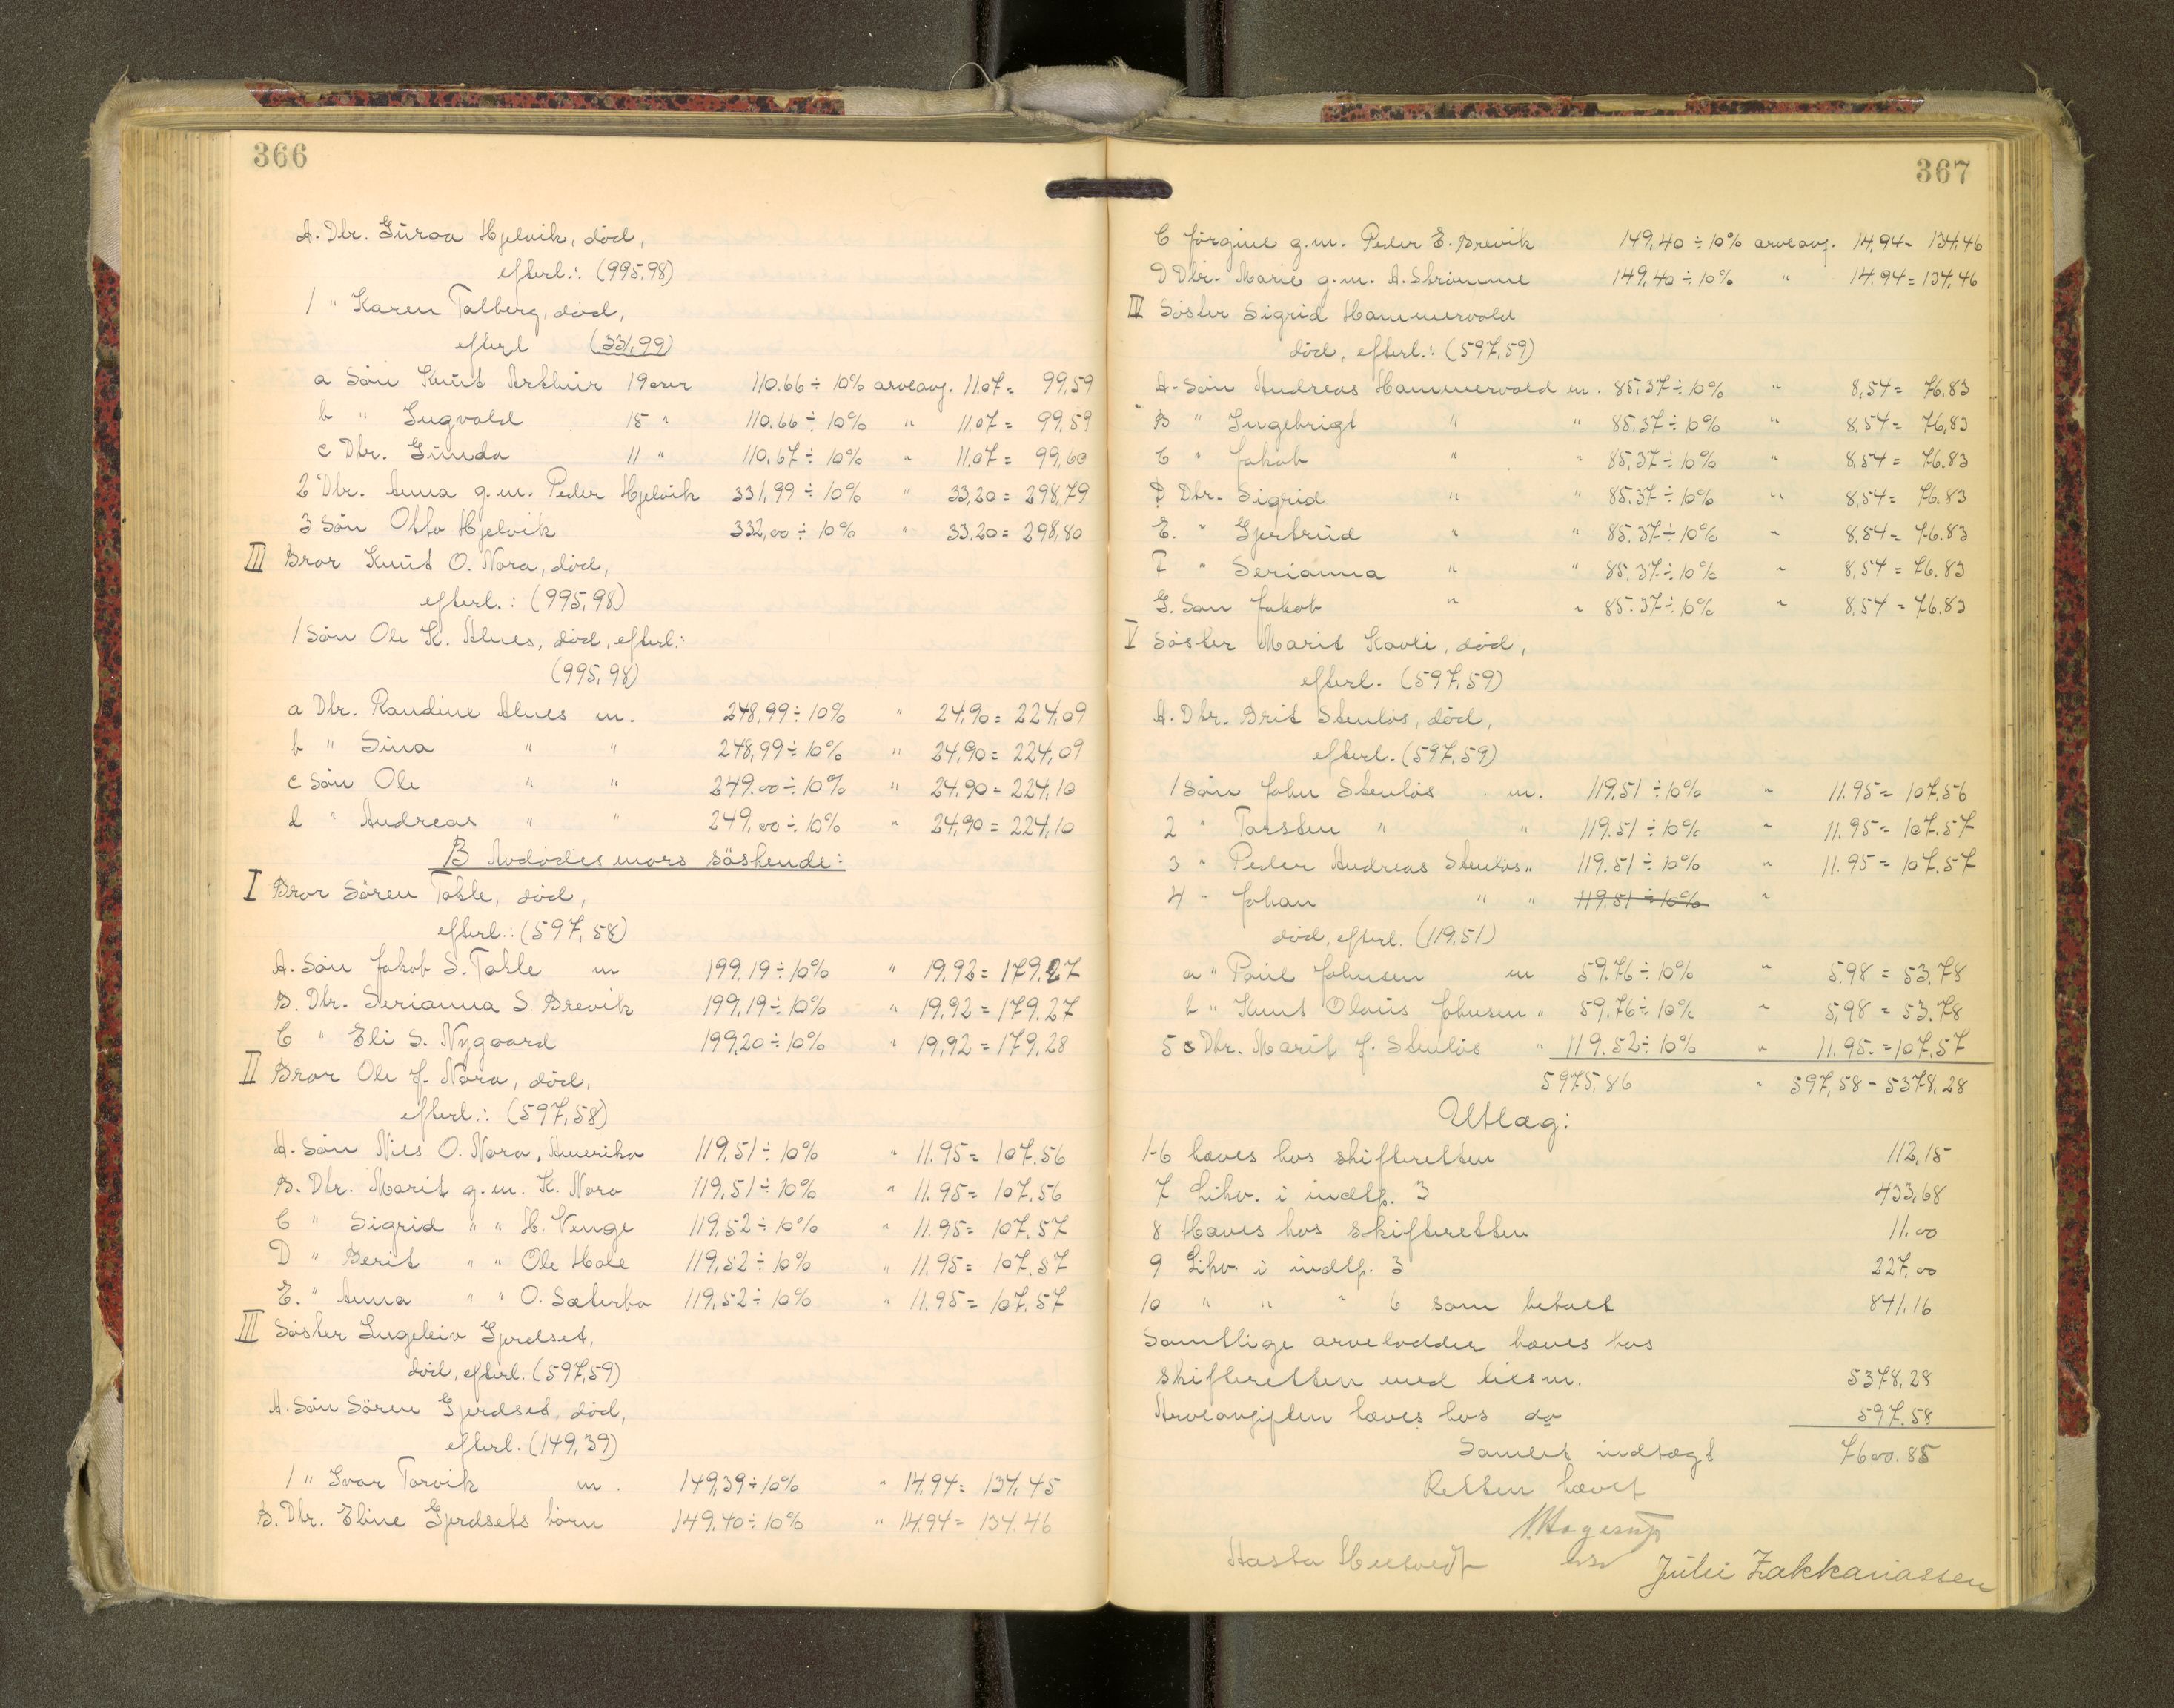 366
A. Dtr. Guroa Hjelvik, död,
efterl.: (995,98)
1 " Karen Talberg, död,
efterl (331,99)
a Sön Knut Arthur 19 aar 110.66 ÷ 10% arveavg. 11.07 = 99,59
b " Ingvald 15 " 110.66 ÷ 10% " 11.07 = 99,59
c Dtr. Gunda 11 " 110.67 ÷ 10% " 11.07 = 99,60
2 Dtr. Anna g.m. Peder Hjelvik 331,99 ÷ 10% " 33,20 = 298,79
3 Sön Otto Hjelvik 332,00 ÷ 10% " 33.20 = 298,80
III Bror Knut O. Nora, död,
efterl.: (995,98)
1 Sön Ole K. Alnes, död, efterl.:
(995,98)
a Dtr. Randine Alnes m. 248,99 ÷ 10% " 24,90 = 224,09
b " Sina " " 248,99 ÷ 10% " 24,90 = 224,09
c Sön Ole " " 249.00 ÷ 10% " 24.90 = 224,10
d " Andreas " " 249,00 ÷ 10% " 24,90 = 224,10
B Avdödes mors söskende:
I Bror Sören Tahle, död,
efterl.: (597,58)
A. Sön Jakob S. Tahle m 199,19 ÷ 10% " 19,92 = 179.27
B. Dtr. Serianna S. Brevik 199,19 ÷ 10% " 19,92 = 179.27
C " Eli S. Nygaard 199,20 ÷ 10% " 19,92 = 179,28
II Bror Ole J. Nora, död,
efterl.: (597,58)
A. Sön Nils O. Nora, Amerika 119,51 ÷ 10% " 11.95 = 107.56
B. Dtr. Marit g.m. K. Nora 119,51 ÷ 10% " 11.95 = 107.56
C " Sigrid " " H. Venge 119,52 ÷ 10% " 11.95 = 107.57
D " Berit " " Ole Hole 119,52 ÷ 10% " 11.95 = 107.57
E. " Anna " " O. Sæterbø 119,52 ÷ 10% " 11.95 = 107.57
III Söster Ingeleiv Gjerdset,
död, efterl. (597,59)
A. Sön Sören Gjerdset, död,
efterl. (149,39)
1 " Ivar Torvik m. 149,39 ÷ 10% " 14,94 = 134,45
B. Dtr. Eline Gjerdsets börn 149.40 ÷ 10% " 14.94 = 134.46
367
C Jörgine g.m. Peder E. Brevik 149,40 ÷ 10% arveavg. 14,94 = 134.46
D Dtr. Marie g.m. A. Strömme 149,40 ÷ 10% " 14.94 = 134,46
IV Söster Sigrid Hammervold
död, efterl.: (597,59)
A. Sön Andreas Hammervold m. 85,37 ÷ 10% " 8,54 = 76,83
B " Ingebrigt " " 85.37 ÷ 10% " 8,54 = 76,83
C " Jakob " " 85,37 ÷ 10% " 8,54 = 76.83
D Dtr. Sigrid " " 85.37 ÷ 10% " 8,54 = 76.83
E. " Gjertrud " " 85.37 ÷ 10% " 8,54 = 76.83
F " Serianna " " 85,37 ÷ 10% " 8,54 = 76.83
G. Sön Jakob " " 85.37 ÷ 10% " 8,54 = 76.83
V Söster Marit Kavli, död,
efterl. (597,59)
A. Dtr. Brit Stenlös, död,
efterl. (597,59)
1 Sön John Stenlös m. 119,51 ÷ 10% " 11.95 = 107,56
2 " Torsten " " 119.51 ÷ 10% " 11.95 = 107.57
3 " Peder Andreas Stenlös " 119.51 ÷ 10% " 11.95 = 107.57
4 " Johan " " 119.51 ÷ 10% "
död, efterl. (119,51)
a " Paul Johnsen m 59.76 ÷ 10% " 5.98 = 53.78
b " Knut Olaus Johnsen " 59.76 ÷ 10% " 5,98 = 53.78
5 Dtr. Marit J. Stenlös " 119.52 ÷ 10% " 11.95. = 107.57
5975,86 " 597,58 - 5378,28
Utlæg:
1-6 hæves hos skifteretten 112,15
7 Likv. i indtp. 3 433,68
8 Hæves hos skifteretten 11.00
9 Likv. i indtp. 3 227,00
10 " " " 6 som betalt 841.16
Samtlige arvelodder hæves hos
skifteretten med tils m. 5378,28
Arveavgiften hæves hos do 597.58
Samlet indtægt 7600.85
Retten hævet
N. Hagerup
Aasta
Julie Zakkariassen